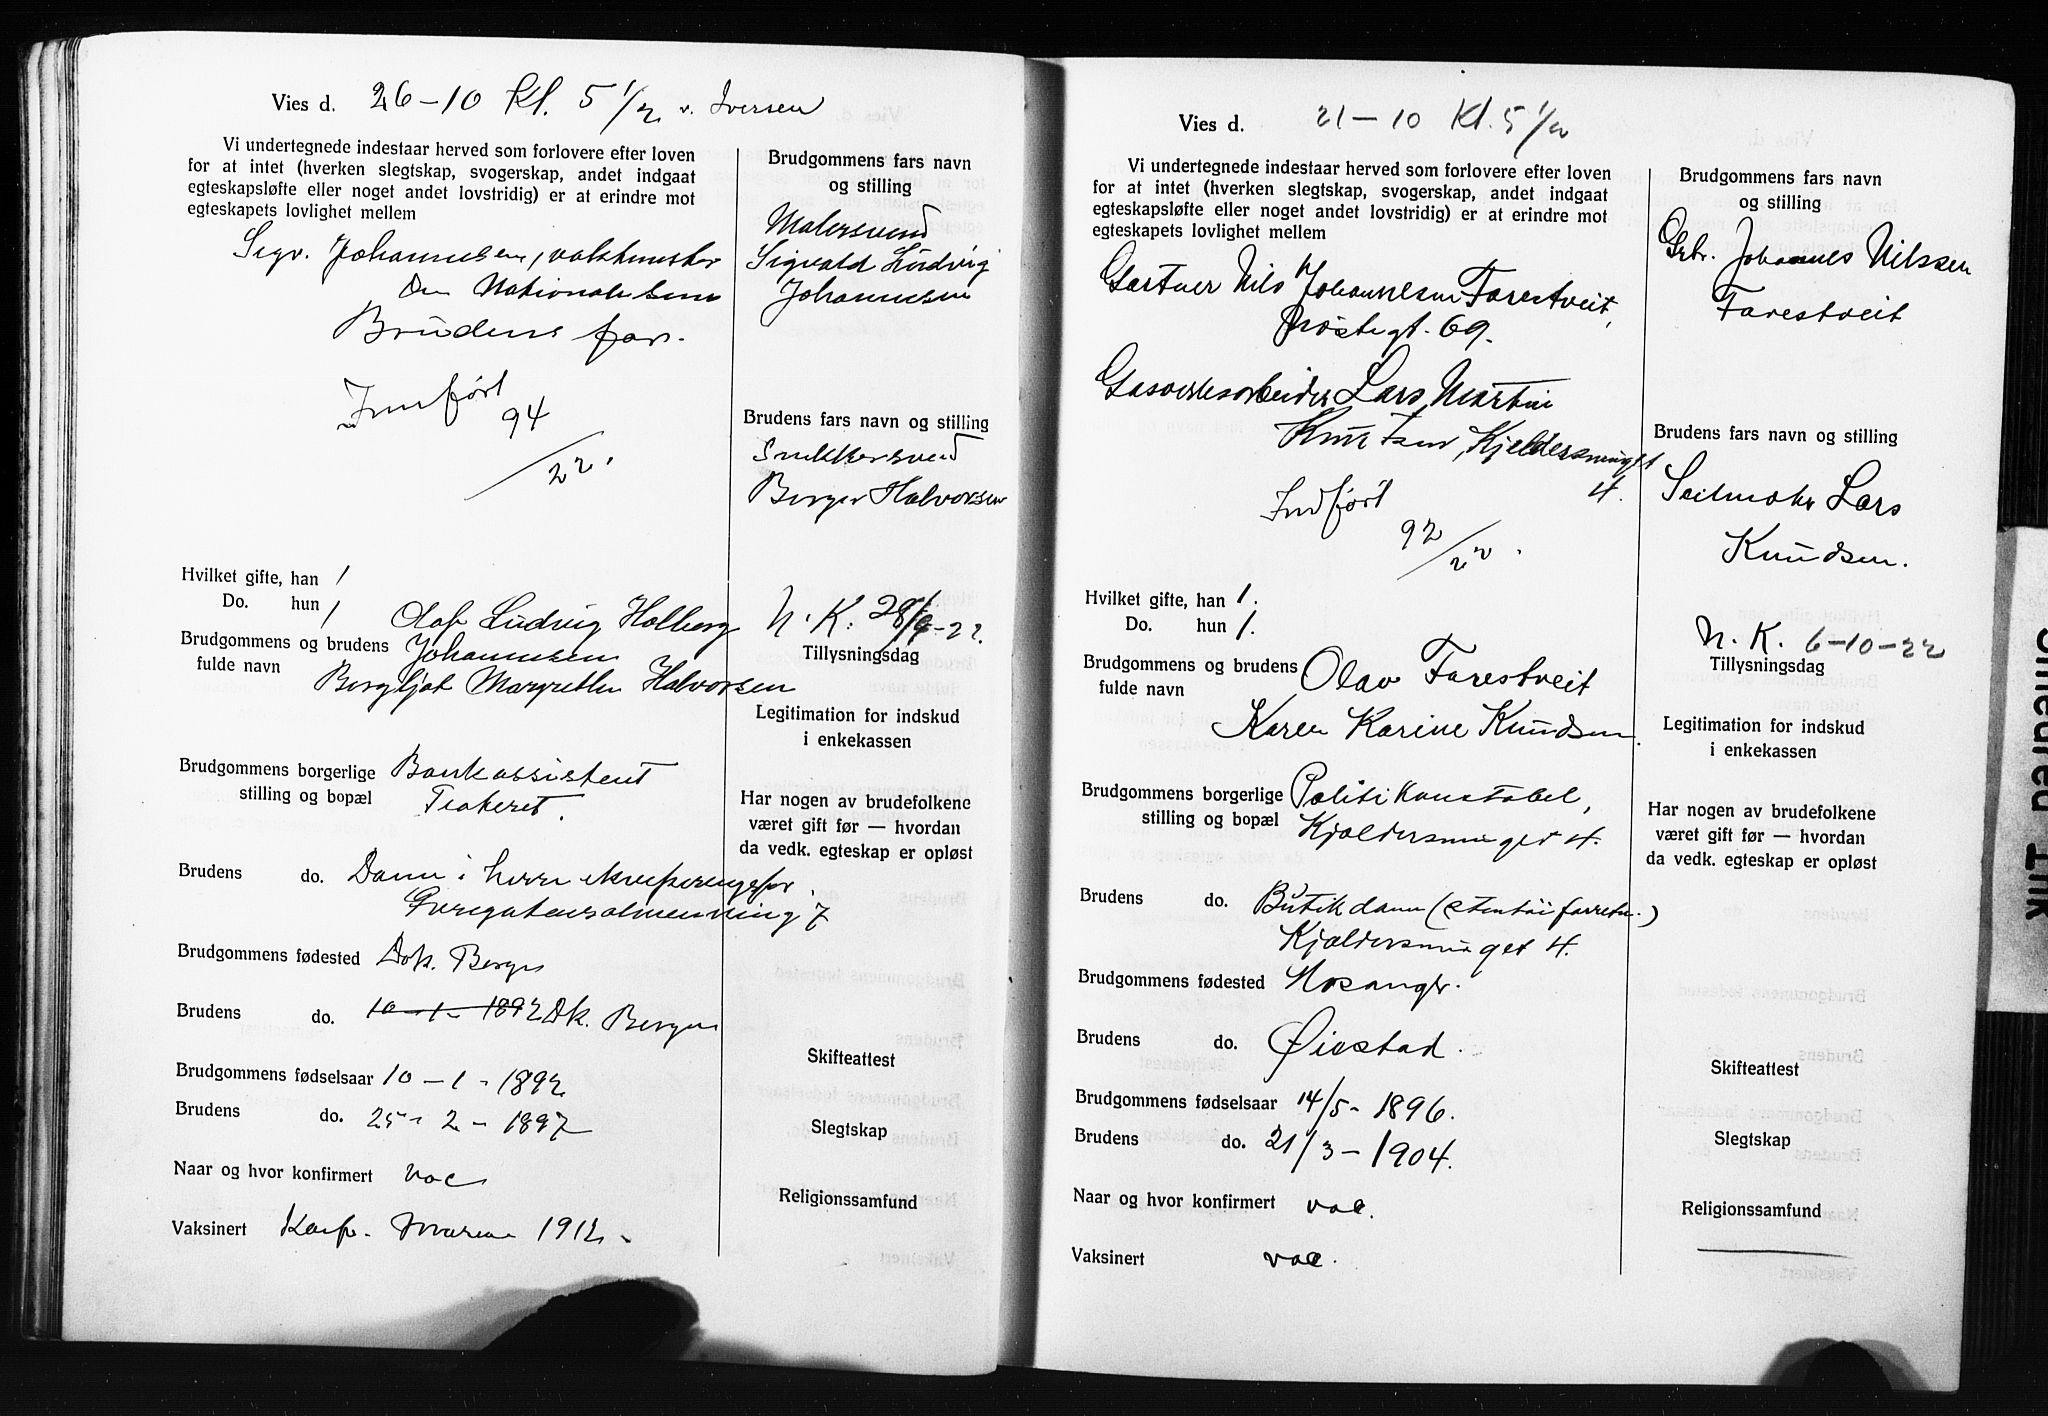 Vies d. 26-10 Kl. 5 1/2 v. Iversen
Vi undertegnede indestaar herved som forlovere efter loven
for at intet (hverken slegtskap, svogerskap, andet indgaat
egteskapsløfte eller noget andet lovstridig) er at erindre mot
egteskapets lovlighet mellem
Sigv. Johannesen, vaktmester
Den Nationale Scene
Brudens far.
Innført
94
/22.
Brudgommens fars navn
og stilling
Malersvend
Sigvald Ludvig
Johannesen
Brudens fars navn og stilling
Snekkersvend
Berger Halvorsen
Hvilket gifte, han 1
Do. hun 1
Brudgommens og brudens
fulde navn
Olaf Ludvig Holberg
Johannesen
Bergljot Margrethe Halvorsen
N. K. 28/9-22.
Tillysningsdag
Legitimation for indskud
i enkekassen
Brudgommens borgerlige Bankassistent
stilling og bopæl
Har nogen av brudefolkene
været gift før — hvordan
da vedk. egteskap er opløst
Brudens do. Dame i herreekviperingsfor.
7
Brudgommens fødested Dok. Bergen
Brudens do. 10-1-1892 Dk. Bergen
Skifteattest
Brudgommens fødselsaar 10-1-1892
Brudens do. 25-2-1897
Slegtskap
Naar og hvor konfirmert vac
Religionssamfund
Vaksinert 1912.
Vies d. 21-10 Kl. 5 1/2
Vi undertegnede indestaar herved som forlovere efter loven
for at intet (hverken slegtskap, svogerskap, andet indgaat
egteskapsløfte eller noget andet lovstridig) er at erindre mot
egteskapets lovlighet mellem
Gartner Nils Johannesen Farestveit,
69.
Gasverksarbeider Lars Martin
Knutsen, Kjeldersmuget
4.
Indført
92
/22.
Brudgommens fars navn
og stilling
Gbr. Johannes Nilssen
Farestveit
Brudens fars navn og stilling
Seilmaker Lars
Knudsen.
Hvilket gifte, han 1.
Do. hun 1.
Brudgommens og brudens
fulde navn
Olav Farestveit
Karen Karine Knudsen.
N. K. 6-10-22
Tillysningsdag
Legitimation for indskud
i enkekassen
Brudgommens borgerlige Politikonstabel,
stilling og bopæl Kjældersmuget 4.
Har nogen av brudefolkene
været gift før — hvordan
da vedk. egteskap er opløst
Brudens do. Butikdame (stentøiforretn.)
Kjældersmuget 4.
Brudgommens fødested Hosanger.
Brudens do. Øiestad.
Skifteattest
Brudgommens fødselsaar 14/5-1896.
Brudens do. 21/3-1904.
Slegtskap
Naar og hvor konfirmert vac.
Religionssamfund
Vaksinert vac.